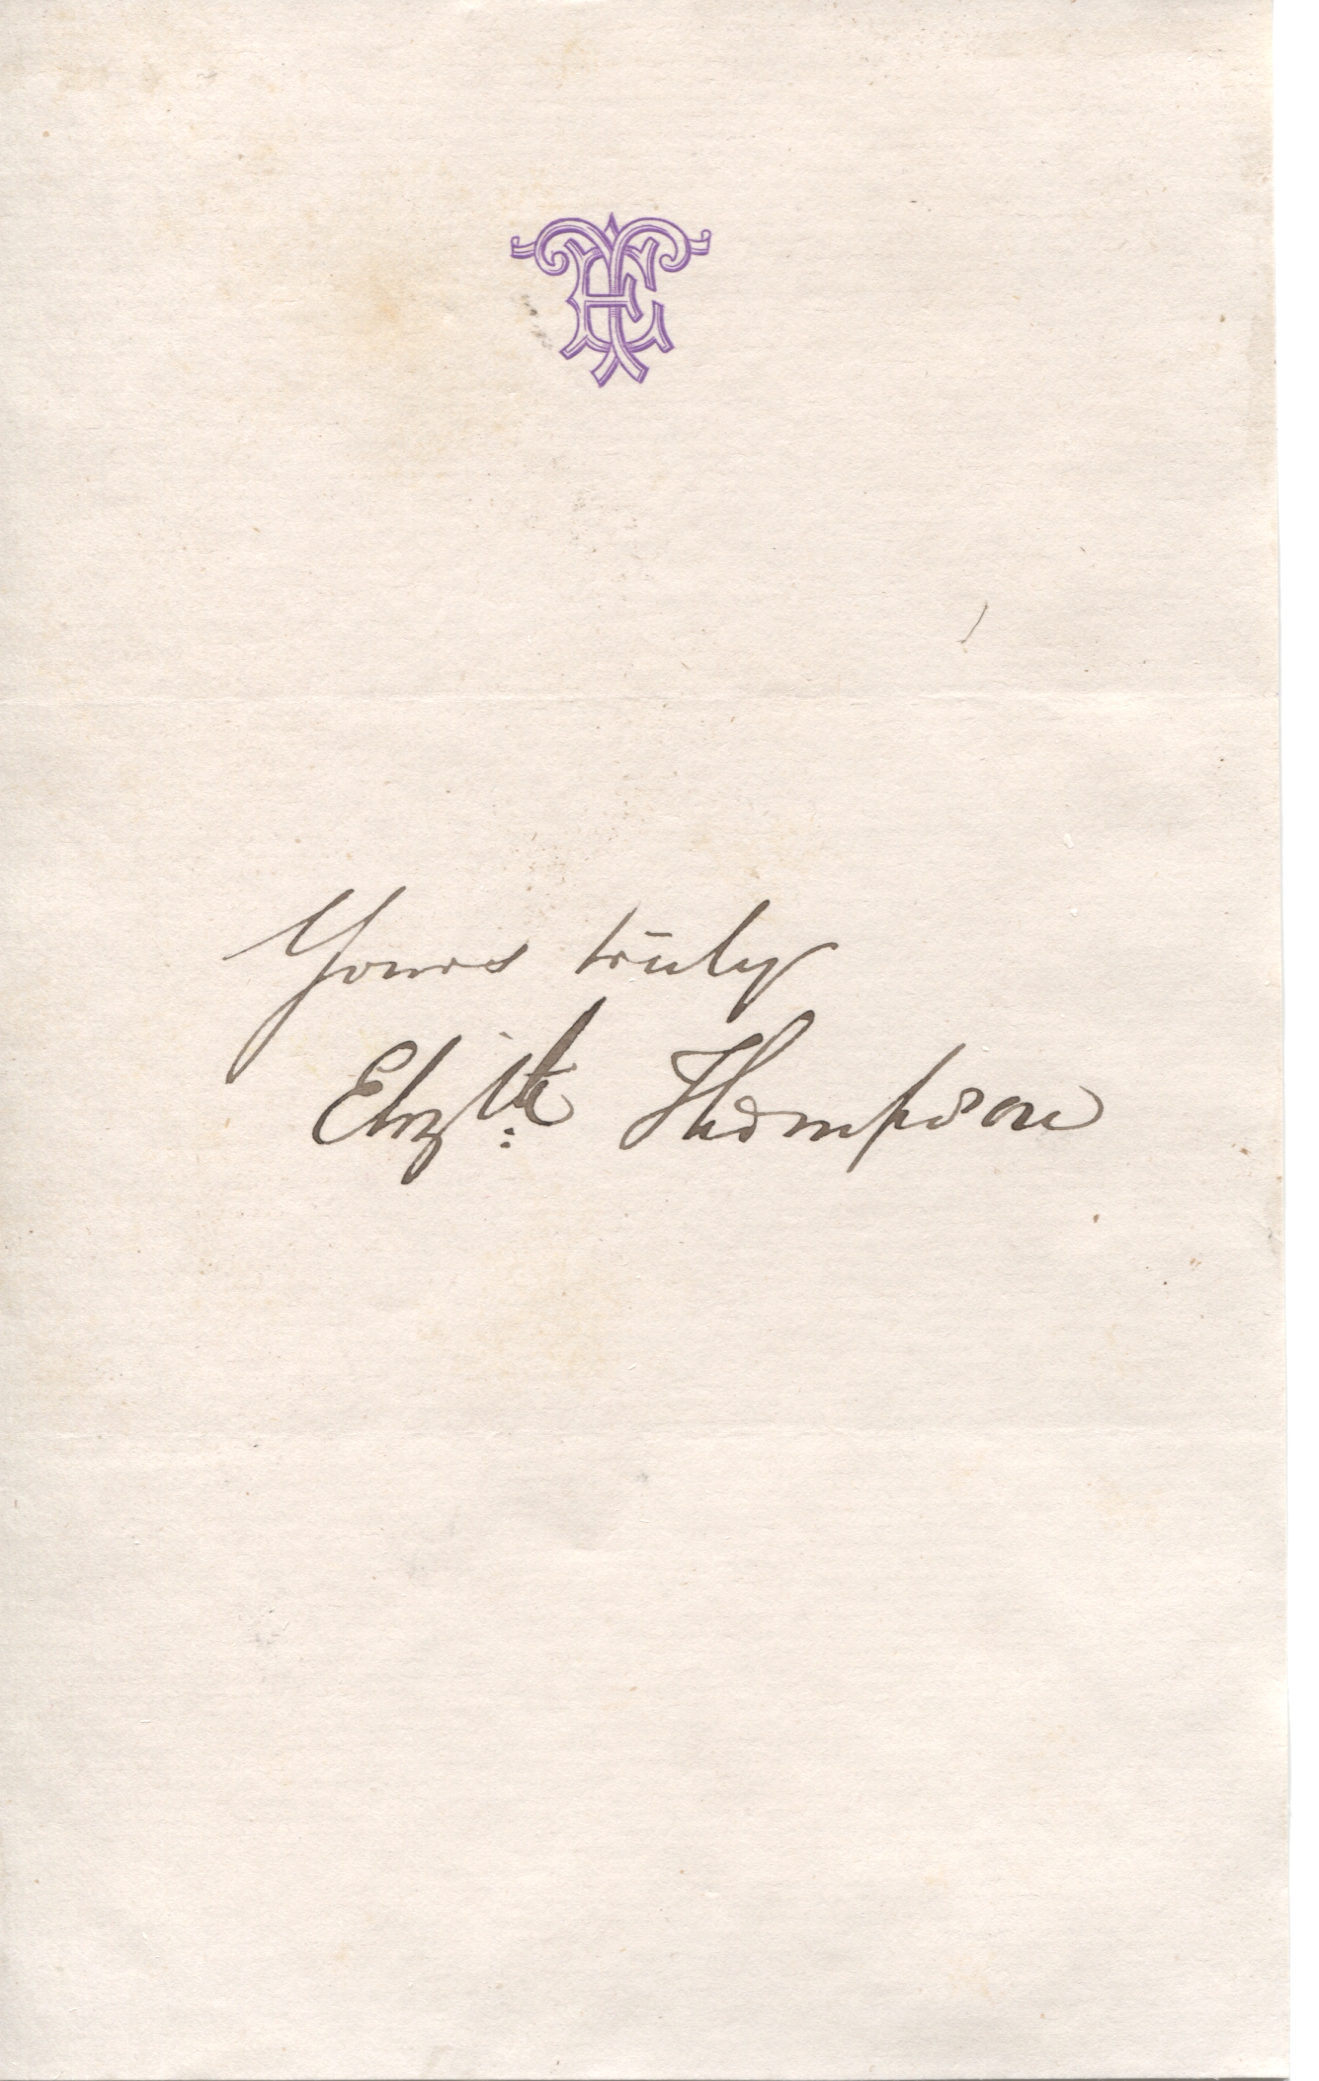 ET
Yours truly
Elizth: Thompson